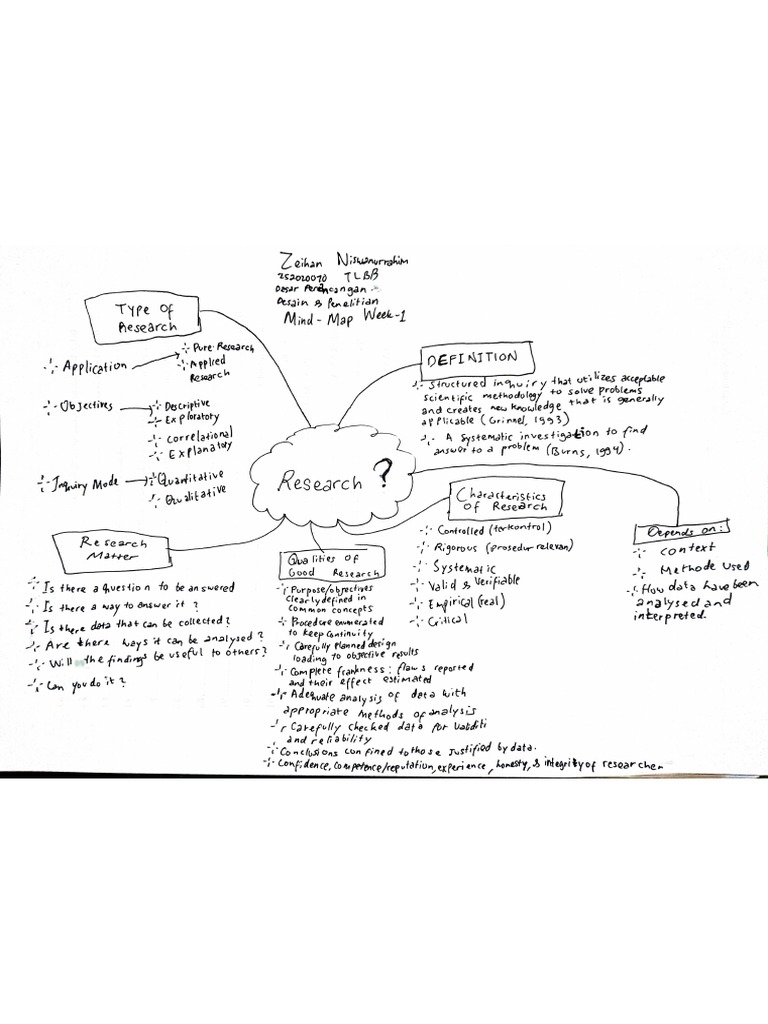 Zeihan Niswanurrahim
252020070 TLBB
Dasar Perancangan
Desain & Penelitian
Mind-Map Week-1
Type of
Research
Application
Pure Research
Applied
Research
Objectives
Descriptive
Exploratoty
Correlational
Explanatory
Inquiry Mode
Quantitative
Qualitative
DEFINITION
Structured inquiry that utilizes acceptable
scientific methodology to solve problems
and creates new knowledge that is generally
applicable (Grinnel, 1993)
A systematic investigation to find
answer to a problem (Burns, 1994).
Research ?
Characteristics
of Research
Controlled (terkontrol)
Rigorous (prosedur relevan)
Systematic
Valid & Verifiable
Empirical (real)
Critical
Depends on:
Context
Methode Used
How data have been
analysed and
interpreted.
Research
Matter
Is there a question to be answered
Is there a way to answer it ?
Is there data that can be collected?
Are there ways it can be analysed?
Will the findings be useful to others?
Can you do it?
Qualities of
Good Research
Purpose/objectives
clearly defined in
common concepts
Procedure enumerated
to keep continuity
Carefully planned design
loading to objective results
Complete frankness: flaws reported
and their effect estimated
Adequate analysis of data with
appropriate methods of analysis
Carefully checked data for validiti
and reliability
Conclusions confined to those justified by data.
Confidence, competence/reputation, experience, honesty, & integrity of researcher